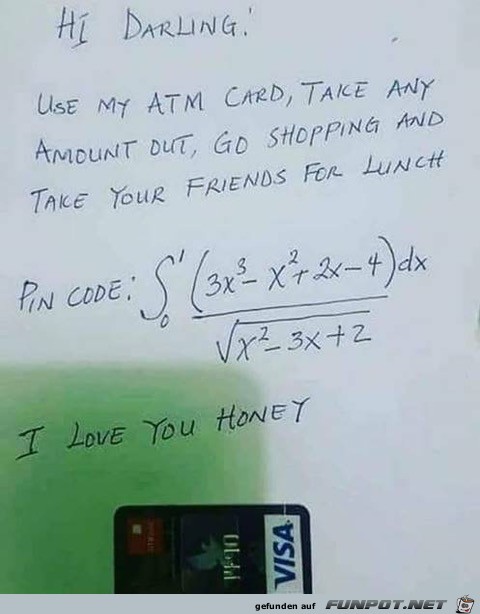 HI DARLING!
USE MY ATM CARD, TAKE ANY
AMOUNT OUT, GO SHOPPING AND
TAKE YOUR FRIENDS FOR LUNCH
PIN CODE: ∫₀¹ (3x³ - x² + 2x - 4)dx / √(x² - 3x + 2)
I LOVE YOU HONEY
VISA
gefunden auf FUNPOT.NET